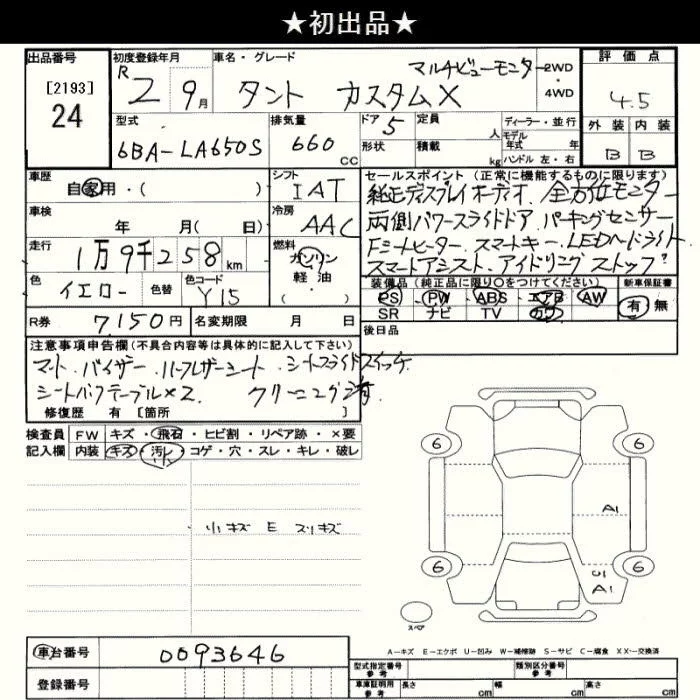 ★初出品★
出品番号
[2193]
24
初度登録年月
R 2 9月
車名・グレード
マルチビューモニター
タント カスタムX
2WD
・
4WD
評価点
4.5
外装 内装
B B
型式
6BA-LA650S
排気量
660 cc
ドア 5
形状
定員 人
積載 kg
ディーラー・並行
モデル年式 年
ハンドル 左・右
車歴
自家用・( )
シフト
IAT
車検
年 月( 日)
冷房
AAC
走行
1万9千258km
燃料
ガソリン
軽油
・( )
色
イエロー
色替
色コード
Y15
R券
7,150円
名変期限 月 日
セールスポイント(正常に機能するものに限ります)
純正ディスプレイオーディオ.全方位モニター
両側パワースライドドア.パーキングセンサー
Fシートヒーター.スマートキー.LEDヘッドライト
スマートアシスト.アイドリングストップ
装備品(純正品に限り○をつけてください)
PS PW ABS エアB AW
SR ナビ TV カワ
新車保証書
有・無
後日品
注意事項申告欄(不具合内容等は具体的に記入して下さい)
マット.バイザー.ハーフレザーシート.シートスライドスイッチ.
シートバックテーブル×2. クリーニング済.
修復歴 有[箇所 ]
検査員記入欄
FW キズ・飛石・ヒビ割・リペア跡・×要
内装 キズ・汚レ・コゲ・穴・スレ・キレ・破レ
小キズ E スリキズ
6 6
A1
6 6
U1
A1
スペア
A-キズ E-エクボ U-凹み W-補修跡 S-サビ C-腐食 XX-交換済
車台番号
0093646
登録番号
型式指定番号 参考
類別区分番号 参考
車車証明用 参考
長さ cm
幅 cm
高さ cm